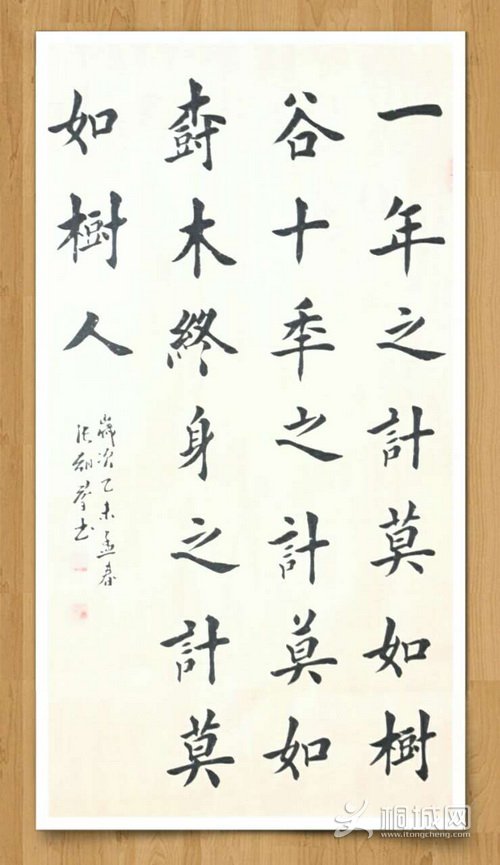 一年之計莫如樹
谷十秊之計莫如
樹木終身之計莫
如樹人
歲次乙未孟春
书
桐城网
www.itongcheng.com